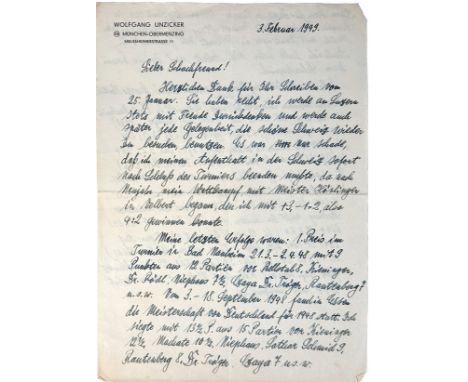 WOLFGANG UNZICKER
MÜNCHEN-OBERMENZING
3. Februar 1949.
Lieber Schachfreund!
Herzlichen Dank für Ihr Schreiben vom
25. Januar. Sie haben recht, ich werde an Luzern
stets mit Freude zurückdenken und werde auch
später jede Gelegenheit, die schöne Schweiz wieder
zu besuchen benutzen. Es war nur schade,
daß ich meinen Aufenthalt in der Schweiz sofort
nach Schluß des Turniers beenden mußte, da nach
Neujahr mein Wettkampf mit Meister
in Velbert begann, den ich mit +3, -1 =2, also
4:2 gewinnen konnte.
Meine letzten Erfolge waren: 1. Preis im
Turnier in Bad Nauheim 21.3. - 2.4.48 mit 9
Punkten aus 12 Partien vor Kieninger,
Dr. Rödl, Niephaus 7½ Dr. Tröger, Rautenberg 7
u.s.w. Vom 3. - 18. September 1948 fand in Essen
die Meisterschaft von Deutschland für 1948 statt. Ich
siegte mit 13½ P. aus 15 Partien vor Kieninger
12½, Machate 10½, Niephaus, Lothar Schmid 9,
Rautenberg 8, Dr. Tröger, 7 u.s.w.